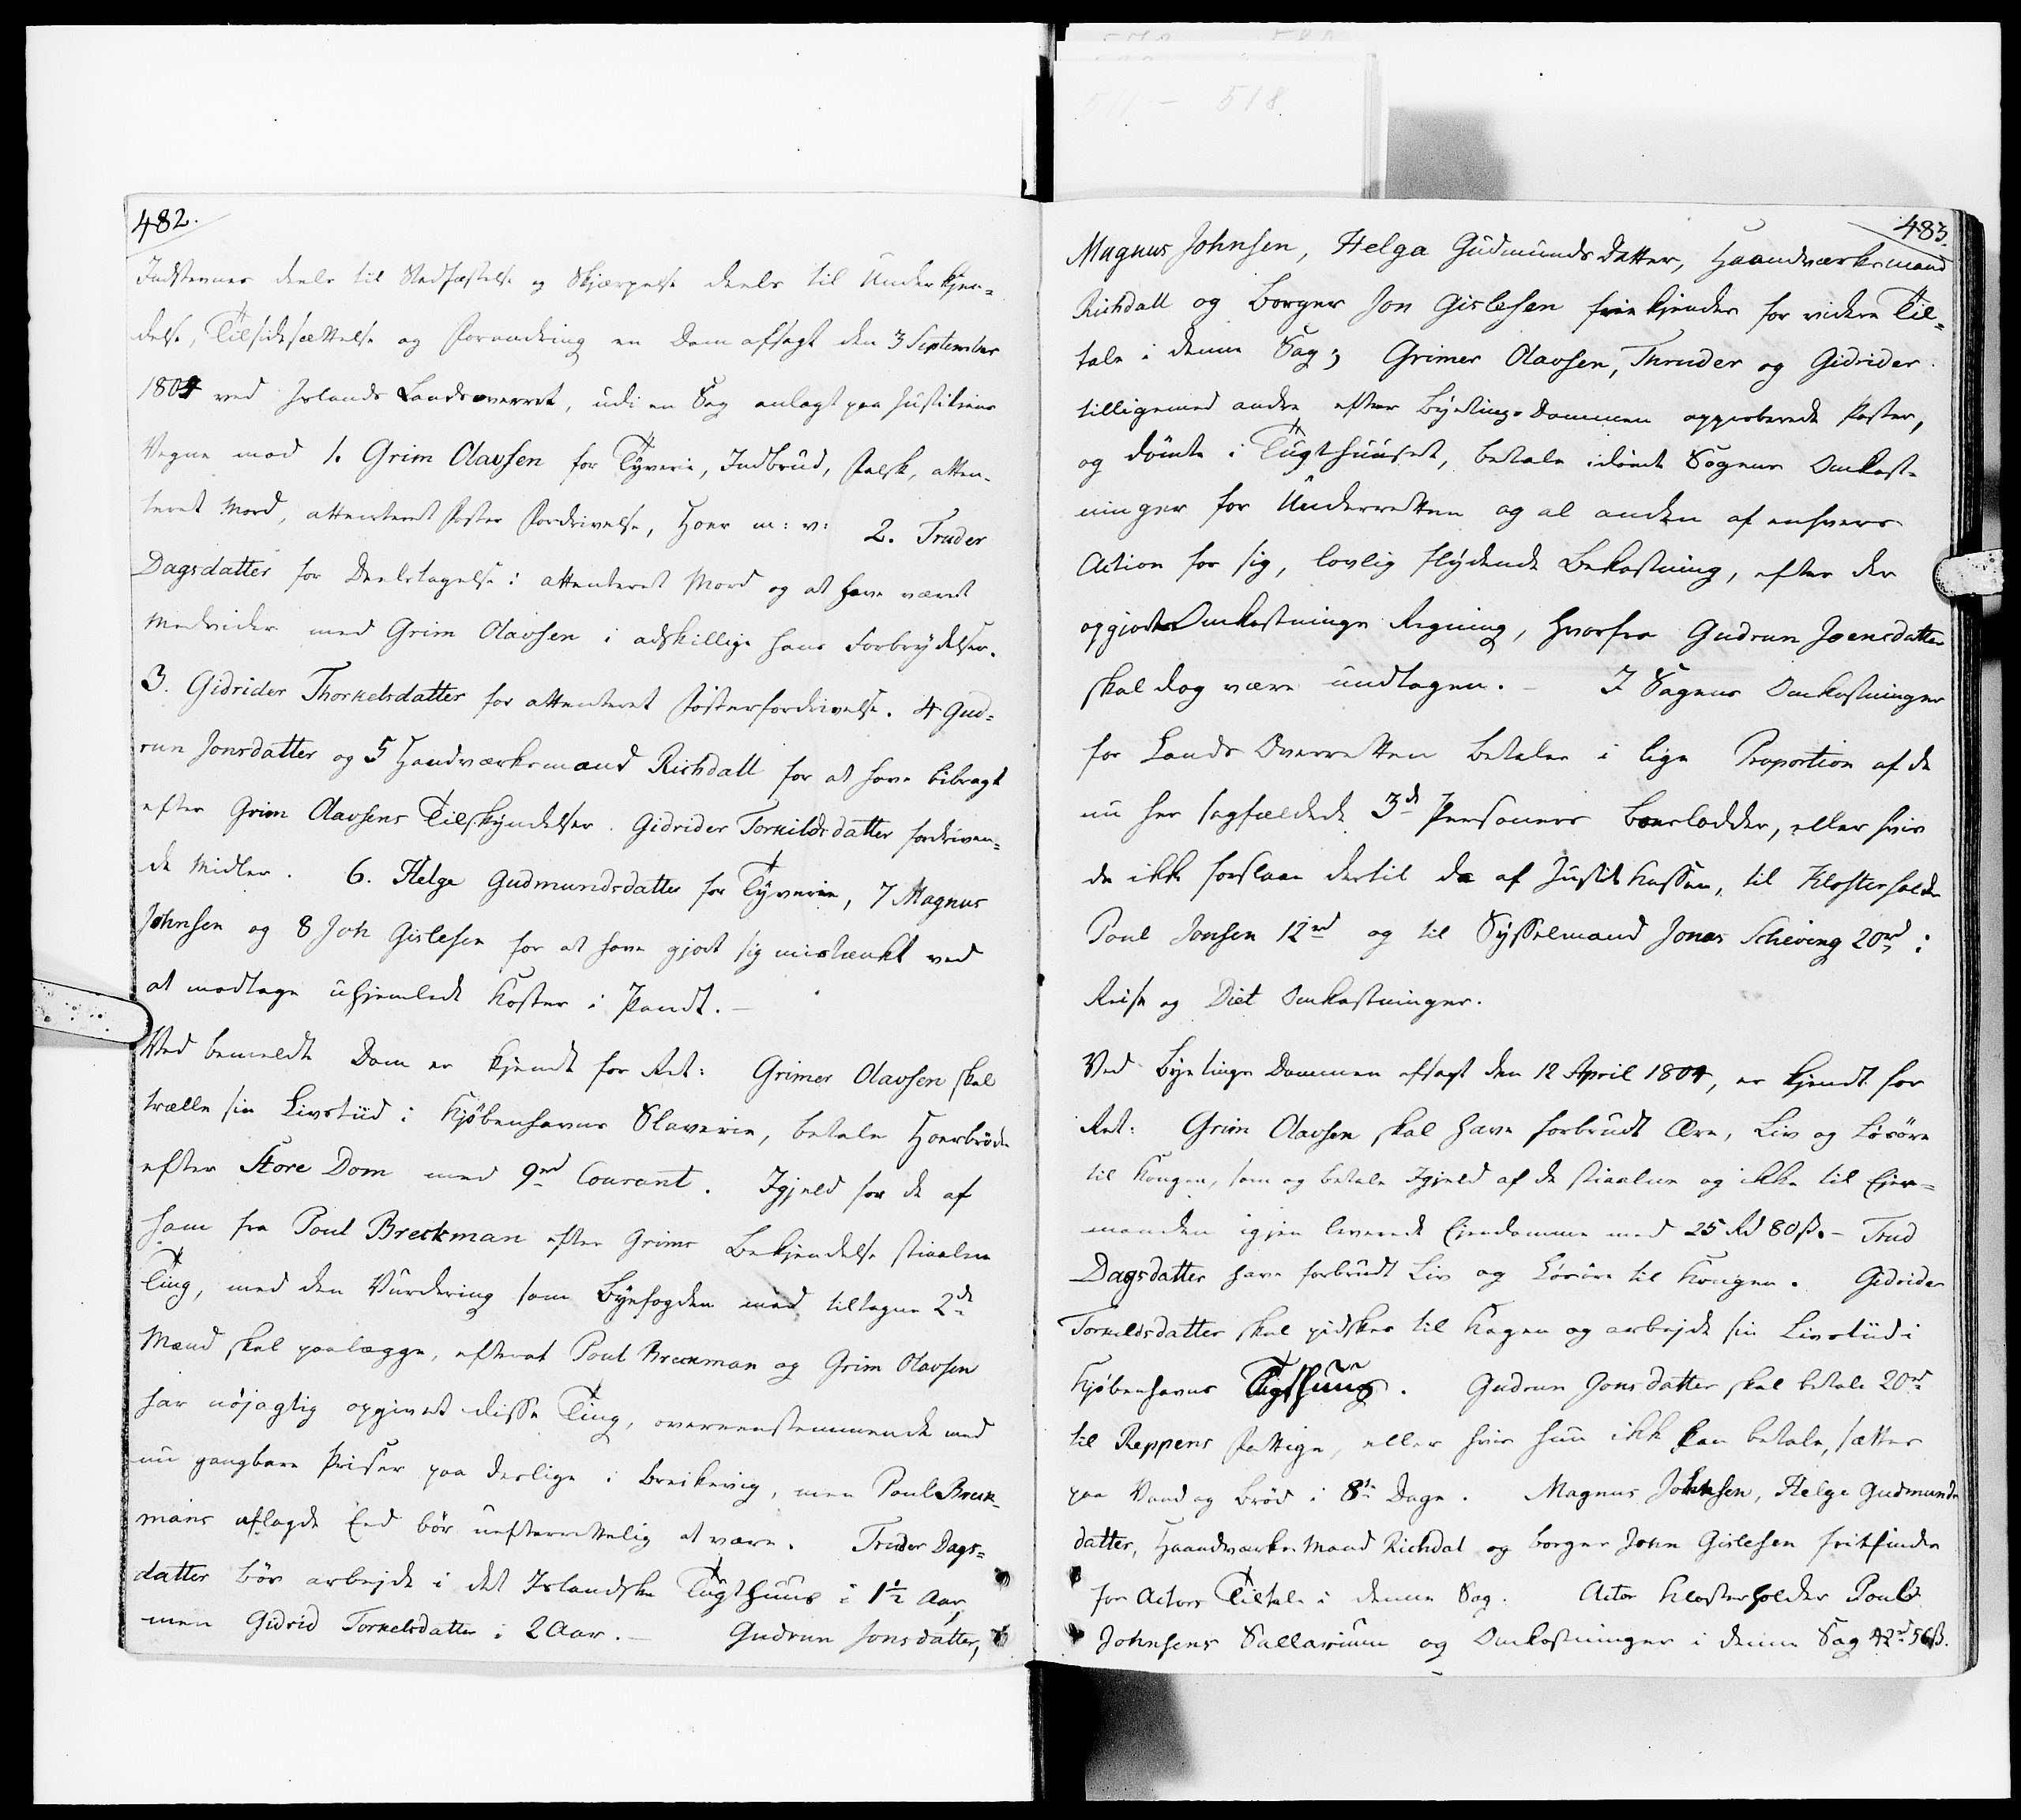 482.
Indstevnes deels til Stadfæstelse og Skjærpelse deels til Underkjen=
delse, Tilsidesættelse og Forandring en Dom afsagt den 3 September
1804 ved Islands Landsoverret, udi en Sag anlagt paa Justitiens
Vegne mod 1. Grim Olavsen for Tyverie, Indbrud, Falsk, atten-
teret Mord, attenteret Foster Fordrivelse, Hoer m: v: 2. Truder
Dagsdatter for Deeltagelse i attenteret Mord og at have været
Medvider med Grim Olavsen i adskillige hans Forbrydelser.
3. Gidrider Thorkelsdatter for attenteret Fosterfordrivelse. 4 Gud=
run Jonsdatter og 5 Handværksmand Richdall for at have bibragt
efter Grim Olavsens Tilskyndelser. Gidrider Torkildsdatter fordriven=
de Midler. 6. Helge Gudmundsdatter for Tyverie, 7 Magnus
Johnsen og 8 Joh Gislesen for at have gjort sig mistænkt ved
at modtage uhjemlede Koster i Pandt.
Ved bemeldte Dom er kjendt for Ret: Grimer Olavsen skal
trælle sin Livstiid i Kjøbenhavns Slaverie, betale Hoersbøde
efter Store Dom med 9rd Courant. Igjeld for de af
ham fra Poul Breckman efter Grims Bekjendelse stiaalne
Ting, med den Vurdering som Byefogden med tiltagne 2de
Mænd skal paalægge, efterat Poul Breckman og Grim Olavsen
har nøjagtig opgivet disse Ting, overeenstemmende med
nu gangbare Priser paa deslige i Breikevig, men Poul Breck-
mans aflagde Eed bør uefterrettelig at være. Truder Dags=
datter bør arbejde i det Islandske Tugthuus i 1½ Aar,
men Gidrid Torkelsdatter i 2 Aar. Gudrun Jonsdatter,
483.
Magnus Johnsen, Helga Gudmundsdatter, Haandværksmand
Richdall og Borger Jon Gislesen friekjendes for videre Til=
tale i denne Sag; Grimer Olavsen, Thruder og Gidrider
tilligemed andre efter Byetings-Dommen approberede Poster,
og dømte i Tugthuuset, betale idømte Sagens Omkost-
ninger for Underretten og al anden af enhvers
Action for sig, lovlig flydende Bekostning, efter den
opgjorte Omkostnings Regning, hvorfra Gudrun Joensdatter
skal dog være undtagen. I Sagens Omkostninger
for Lands Overretten betales i lige Proportion af de
nu her sagfældede 3de Personers Boeslodder, eller hvis
de ikke forslaae dertil da af Justits Kassen, til Klosterholder
Poul Jonsen 12rd og til Sysselmand Jonas Scheving 20rd i
Reise og Diet Omkostninger.
Ved Byetings Dommen afsagt den 12 April 1804, er kjendt for
Ret: Grim Olavsen skal have forbrudt Ære, Liv og Løsøre
til Kongen, som og betale Igjeld af de stiaalne og ikke til Ejer=
manden igjen leverede Ejendomme med 25 Rd 80 ß. Trud
Dagsdatter have forbrudt Liv og Løsøre til Kongen. Gidrider
Torkeldsdatter skal pidskes til Kagen og arbejde sin Livstiid i
Kjøbenhavns Tugthuus. Gudrun Jonsdatter skal betale 20rd
til Reppens Fattige, eller hvis hun ikke kan betale, sættes
paa Vand og Brød i 8te Dage. Magnus Johnsen, Helge Gudmunds
datter, Haandværks Mand Richdal og borger John Gislesen fritfindes
for Actors Tiltale i denne Sag. Actor Klosterholder Poul
Johnsens Sallarium og Omkostninger i denne Sag 42rd 56ß.